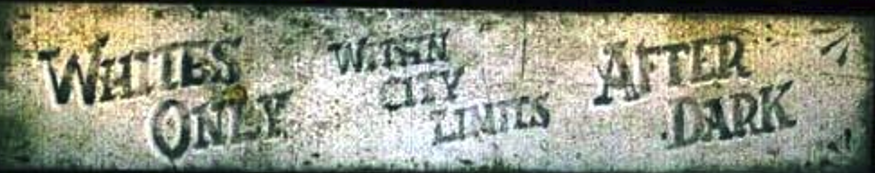 WHITES
ONLY
WITHIN
CITY
LIMITS
AFTER
DARK